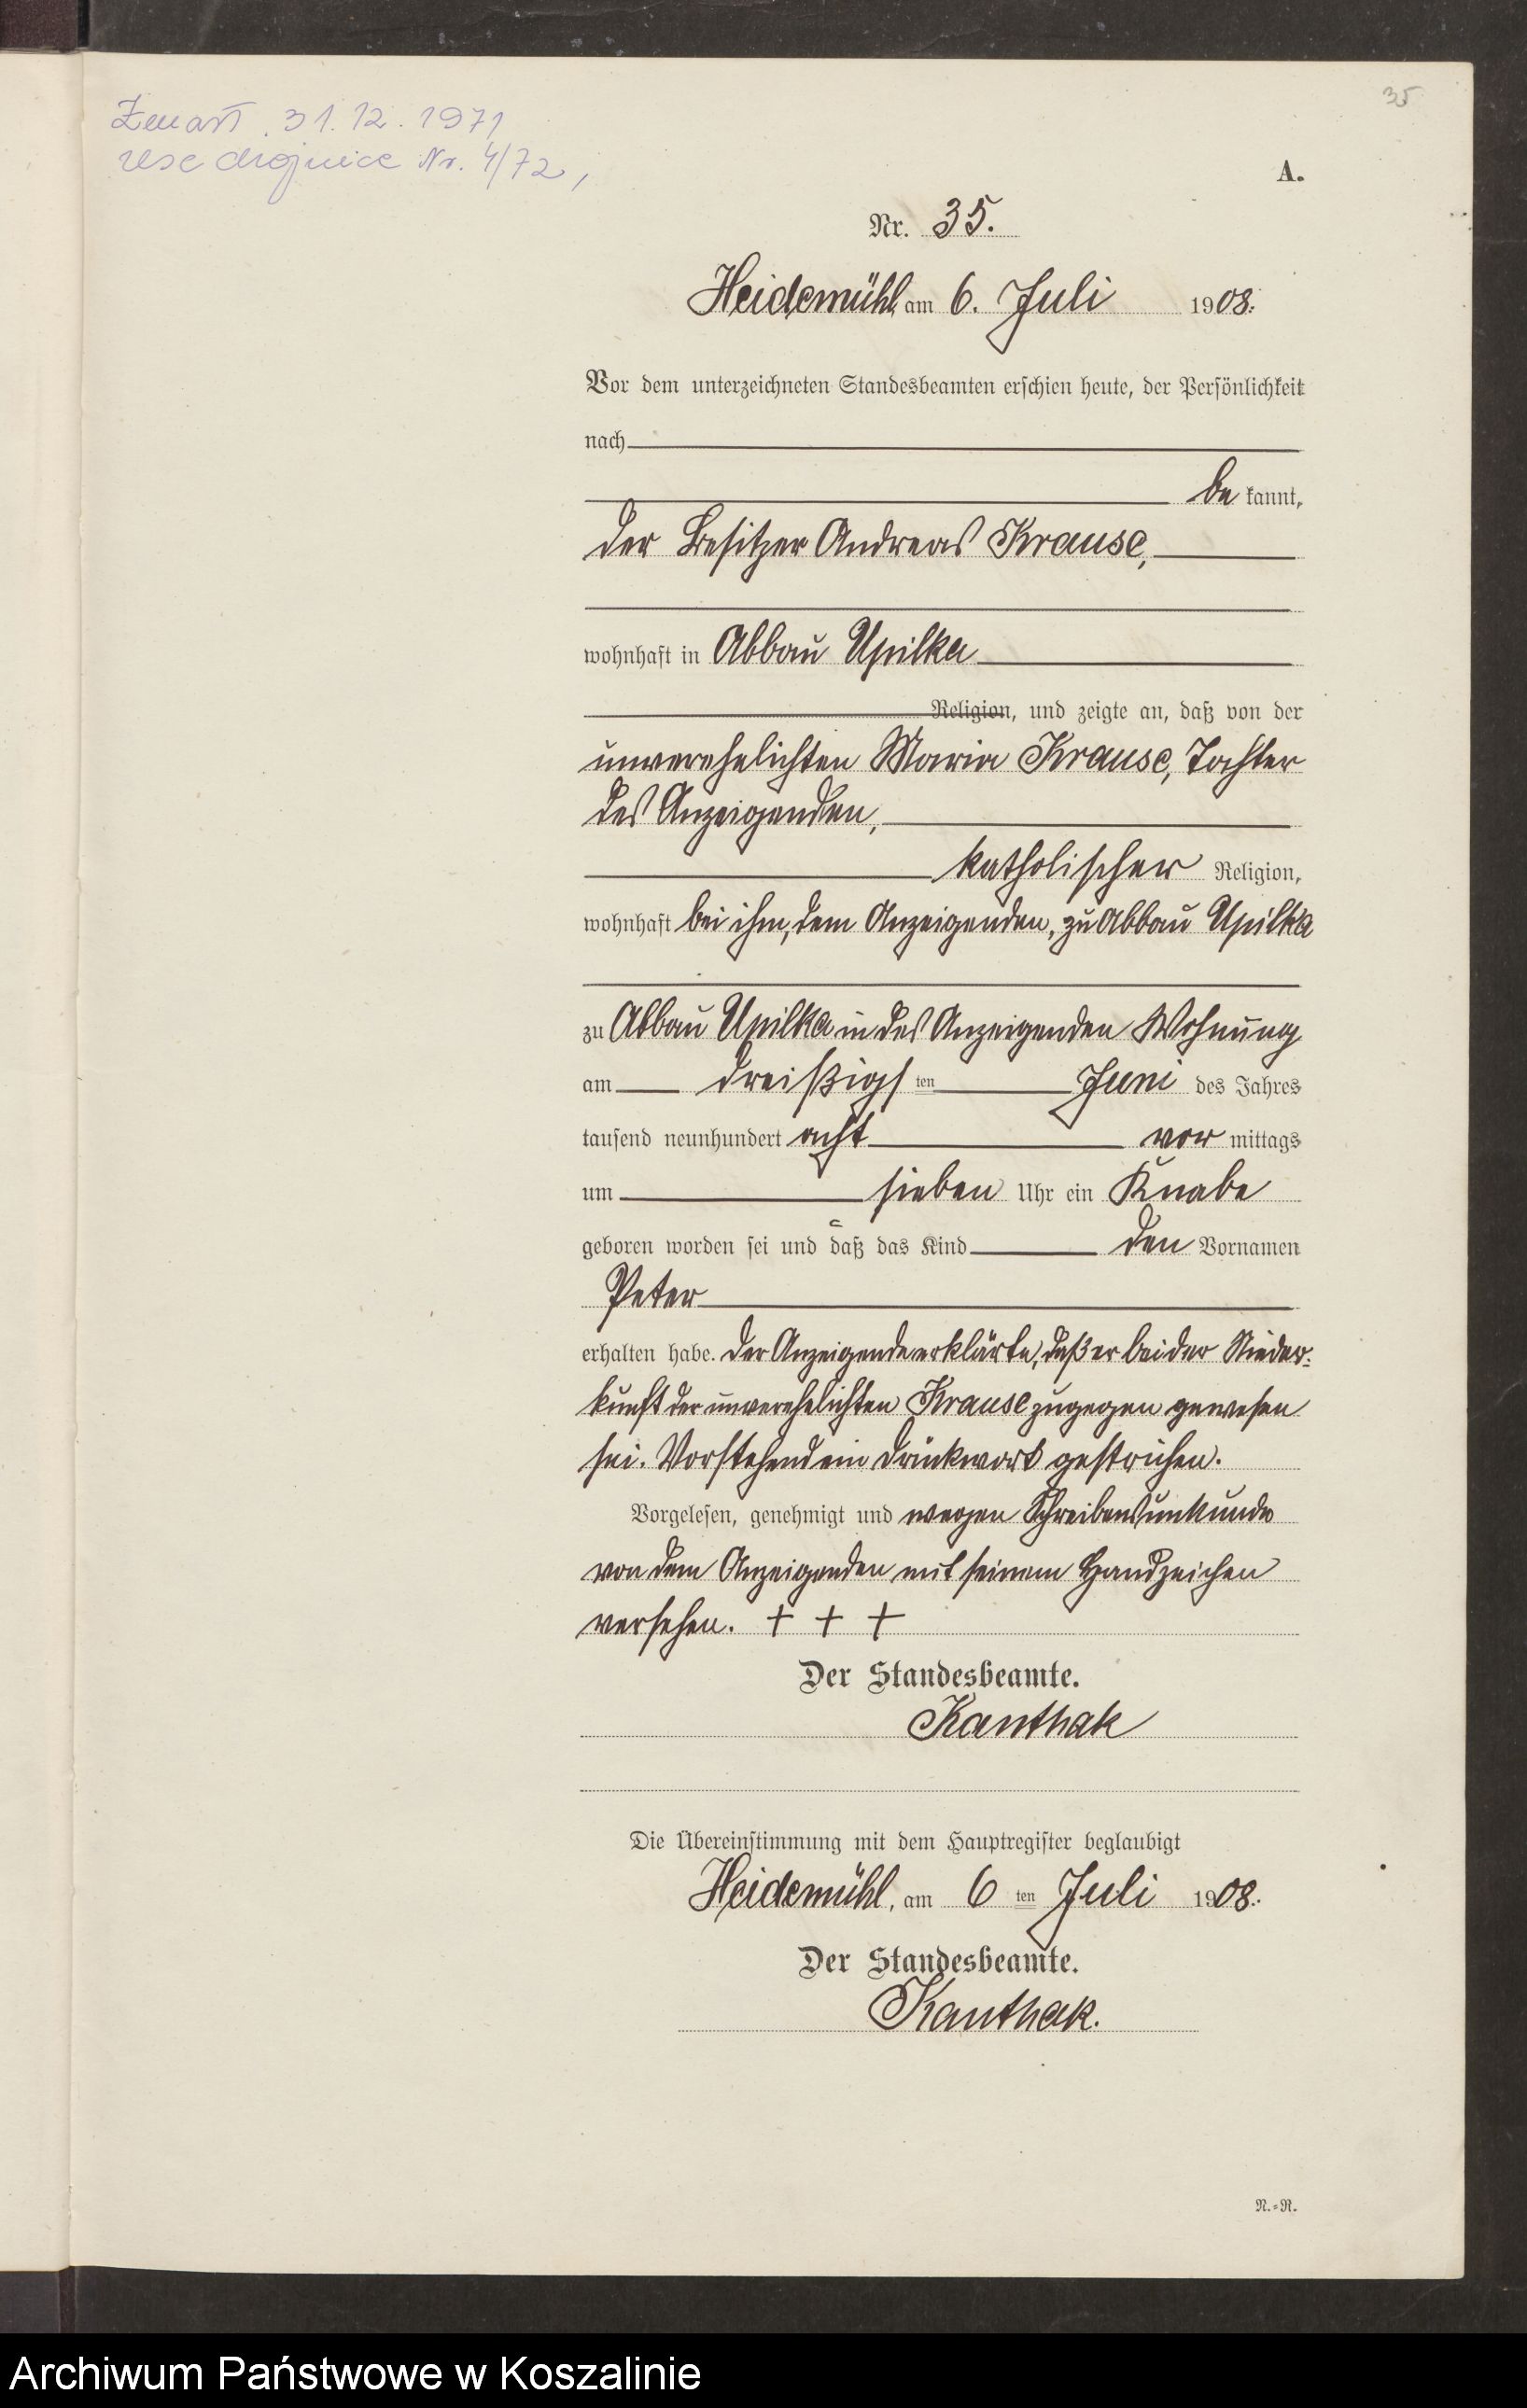 Zmarł 31.12.1971
USC Chojnice Nr. 4/72,
35
A.
Nr. 35.
Heidemühl, am 6. Juli 1908.
Vor dem unterzeichneten Standesbeamten erschien heute, der Persönlichkeit
nach
be kannt,
der Besitzer Andreas Krause,
wohnhaft in Abbau Upilka
Religion, und zeigte an, daß von der
unverehelichten Maria Krause, Tochter
des Anzeigenden,
katholischer Religion,
wohnhaft bei ihm, dem Anzeigenden, zu Abbau Upilka
zu Abbau Upilka in des Anzeigenden Wohnung
am dreißigs ten Juni des Jahres
tausend neunhundert acht vor mittags
um sieben Uhr ein Knabe
geboren worden sei und daß das Kind den Vornamen
Peter
erhalten habe. Der Anzeigende erklärte, daß er bei der Nieder-
kunft der unverehelichten Krause zugegen gewesen
sei. Vorstehend ein Druckwort gestrichen.
Vorgelesen, genehmigt und wegen Schreibensunkunde
von dem Anzeigenden mit seinem Handzeichen
versehen. + + +
Der Standesbeamte.
Kanthak
Die Übereinstimmung mit dem Hauptregister beglaubigt
Heidemühl, am 6 ten Juli 1908.
Der Standesbeamte.
Kanthak.
N.=R.
Archiwum Państwowe w Koszalinie